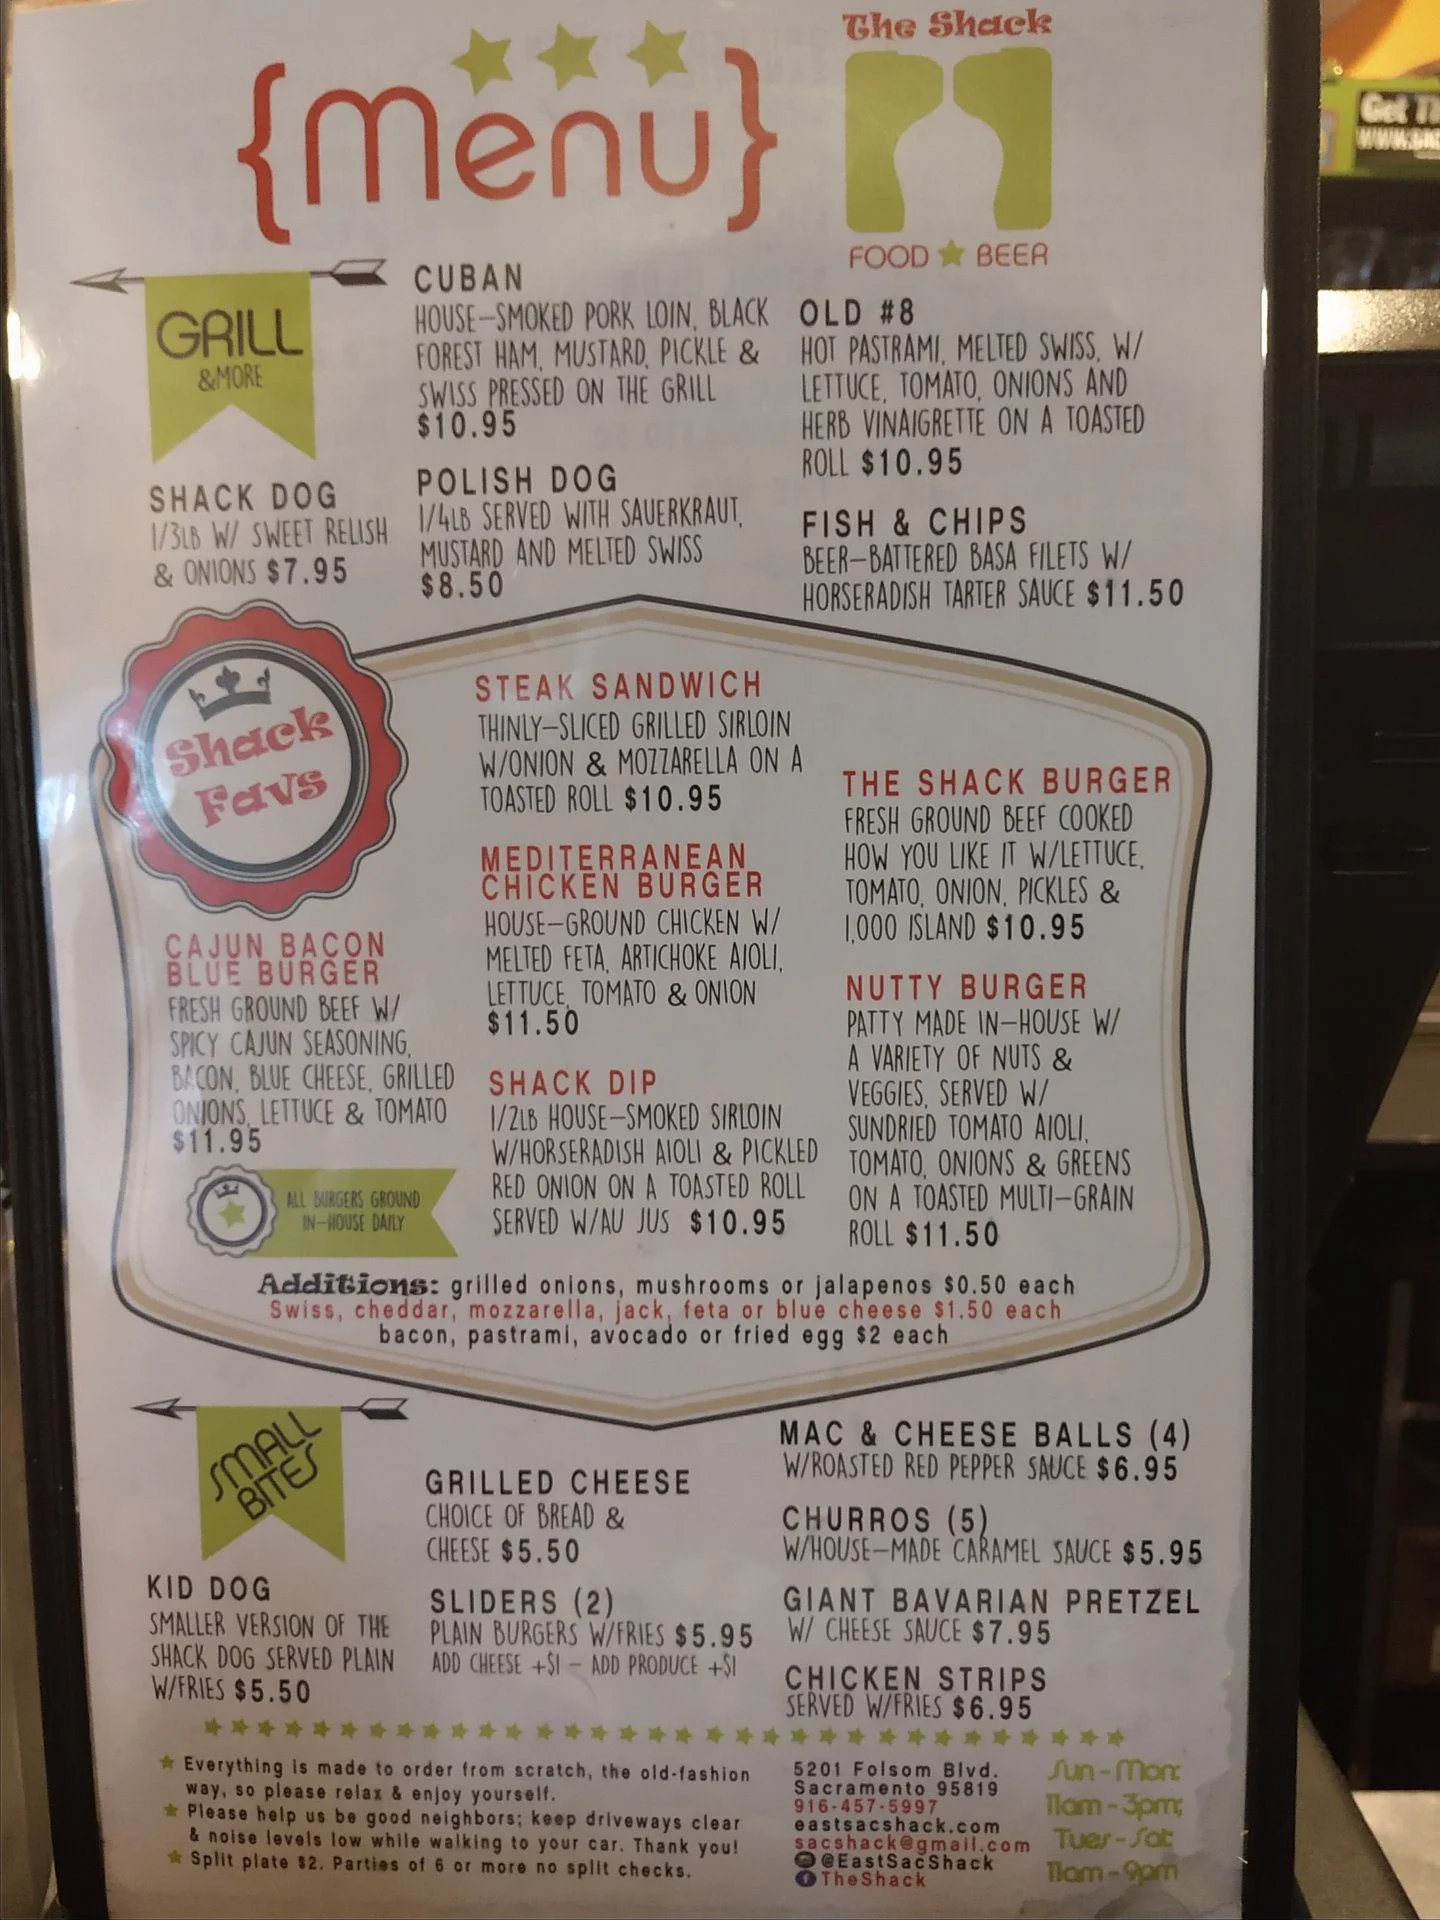 The Shack
{Menu}
FOOD ★ BEER
Get
GRILL
&MORE
SHACK DOG
1/3LB W/ SWEET RELISH
& ONIONS $7.95
CUBAN
HOUSE-SMOKED PORK LOIN, BLACK
FOREST HAM, MUSTARD, PICKLE &
SWISS PRESSED ON THE GRILL
$10.95
POLISH DOG
1/4LB SERVED WITH SAUERKRAUT,
MUSTARD AND MELTED SWISS
$8.50
OLD #8
HOT PASTRAMI, MELTED SWISS, W/
LETTUCE, TOMATO, ONIONS AND
HERB VINAIGRETTE ON A TOASTED
ROLL $10.95
FISH & CHIPS
BEER-BATTERED BASA FILETS W/
HORSERADISH TARTER SAUCE $11.50
Shack
Favs
CAJUN BACON
BLUE BURGER
FRESH GROUND BEEF W/
SPICY CAJUN SEASONING,
BACON, BLUE CHEESE, GRILLED
ONIONS, LETTUCE & TOMATO
$11.95
ALL BURGERS GROUND
IN-HOUSE DAILY
STEAK SANDWICH
THINLY-SLICED GRILLED SIRLOIN
W/ONION & MOZZARELLA ON A
TOASTED ROLL $10.95
MEDITERRANEAN
CHICKEN BURGER
HOUSE-GROUND CHICKEN W/
MELTED FETA, ARTICHOKE AIOLI,
LETTUCE, TOMATO & ONION
$11.50
SHACK DIP
1/2LB HOUSE-SMOKED SIRLOIN
W/HORSERADISH AIOLI & PICKLED
RED ONION ON A TOASTED ROLL
SERVED W/AU JUS $10.95
THE SHACK BURGER
FRESH GROUND BEEF COOKED
HOW YOU LIKE IT W/LETTUCE,
TOMATO, ONION, PICKLES &
1,000 ISLAND $10.95
NUTTY BURGER
PATTY MADE IN-HOUSE W/
A VARIETY OF NUTS &
VEGGIES, SERVED W/
SUNDRIED TOMATO AIOLI,
TOMATO, ONIONS & GREENS
ON A TOASTED MULTI-GRAIN
ROLL $11.50
Additions: grilled onions, mushrooms or jalapenos $0.50 each
Swiss, cheddar, mozzarella, jack, feta or blue cheese $1.50 each
bacon, pastrami, avocado or fried egg $2 each
SMALL
BITES
KID DOG
SMALLER VERSION OF THE
SHACK DOG SERVED PLAIN
W/FRIES $5.50
GRILLED CHEESE
CHOICE OF BREAD &
CHEESE $5.50
SLIDERS (2)
PLAIN BURGERS W/FRIES $5.95
ADD CHEESE +$1 - ADD PRODUCE +$1
MAC & CHEESE BALLS (4)
W/ROASTED RED PEPPER SAUCE $6.95
CHURROS (5)
W/HOUSE-MADE CARAMEL SAUCE $5.95
GIANT BAVARIAN PRETZEL
W/ CHEESE SAUCE $7.95
CHICKEN STRIPS
SERVED W/FRIES $6.95
★ Everything is made to order from scratch, the old-fashion
way, so please relax & enjoy yourself.
★ Please help us be good neighbors; keep driveways clear
& noise levels low while walking to your car. Thank you!
★ Split plate $2. Parties of 6 or more no split checks.
5201 Folsom Blvd.
Sacramento 95819
916-457-5997
eastsacshack.com
sacshack@gmail.com
@EastSacShack
TheShack
Sun-Mon:
11am-3pm;
Tues-Sat:
11am-9pm